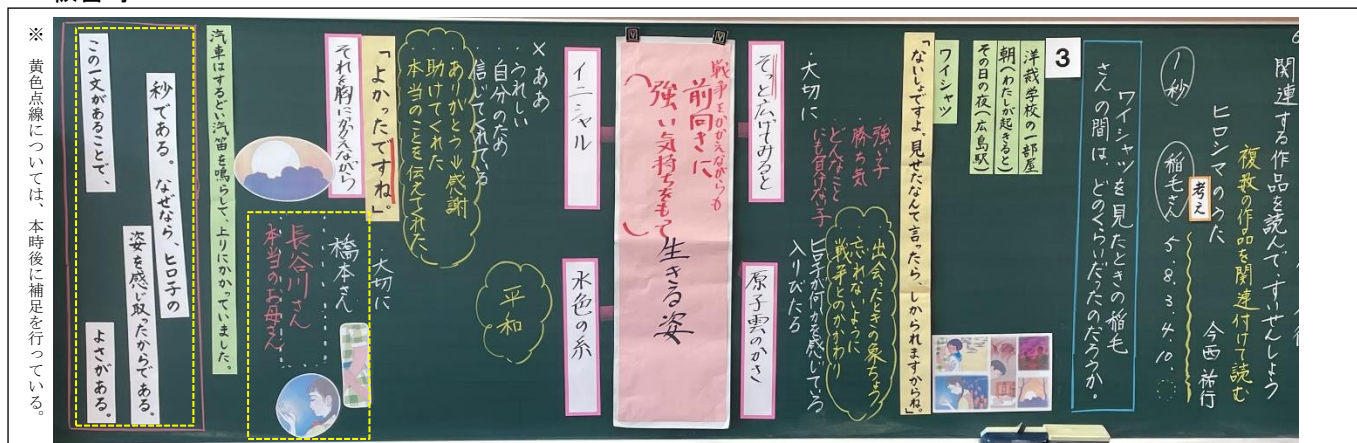 関連する作品を読んで、すいせんしよう
複数の作品を関連付けて読む
ヒロシマのうた　今西祐行
考え
1秒　稲毛さん　5.8.3.4.10.
ワイシャツを見たときの稲毛
さんの間は、どのくらいだったのだろうか。
3
洋裁学校の一部屋
朝(わたしが起きると)
その日の夜(広島駅)
ワイシャツ
「ないしょですよ。見せたなんて言ったら、しかられますからね。」
強い子
勝ち気
どんなこと
にも負けない子
大切に
出会ったときの象ちょう
忘れないように
戦争とのかかわり
ヒロ子が何かを感じている
入りびたる
そっと広げてみると
原子雲のかさ
戦争をかかえながらも
前向きに
強い気持ちをもって
生きる姿
イニシャル
水色の糸
×ああ
うれしい
自分のため
信じてくれている
ありがとう→感謝
助けてくれた
本当のことを伝えてくれた
平和
「よかったですね。」
それを胸にかかえながら
大切に
橋本さん
長谷川さん
本当のお母さん
汽車はするどい汽笛を鳴らして、上りにかかっていました。
秒である。なぜなら、ヒロ子の
姿を感じ取ったからである。
この一文があることで、
よさがある。
※ 黄色点線については、本時後に補足を行っている。